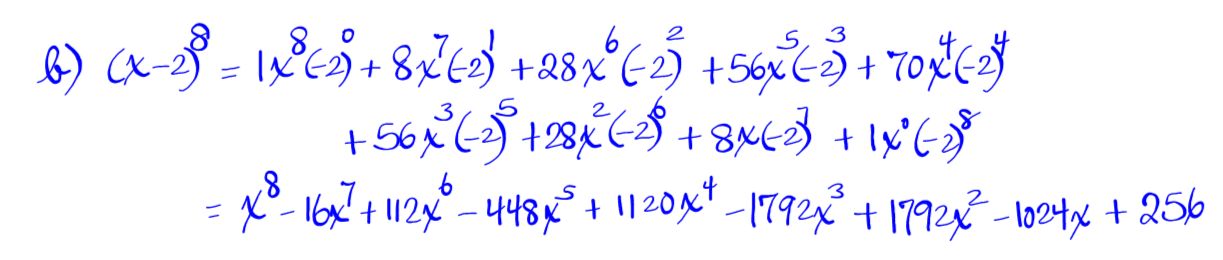 b) (x-2)⁸ = 1x⁸(-2)⁰ + 8x⁷(-2)¹ + 28x⁶(-2)² + 56x⁵(-2)³ + 70x⁴(-2)⁴
+ 56x³(-2)⁵ + 28x²(-2)⁶ + 8x(-2)⁷ + 1x⁰(-2)⁸
= x⁸ - 16x⁷ + 112x⁶ - 448x⁵ + 1120x⁴ - 1792x³ + 1792x² - 1024x + 256